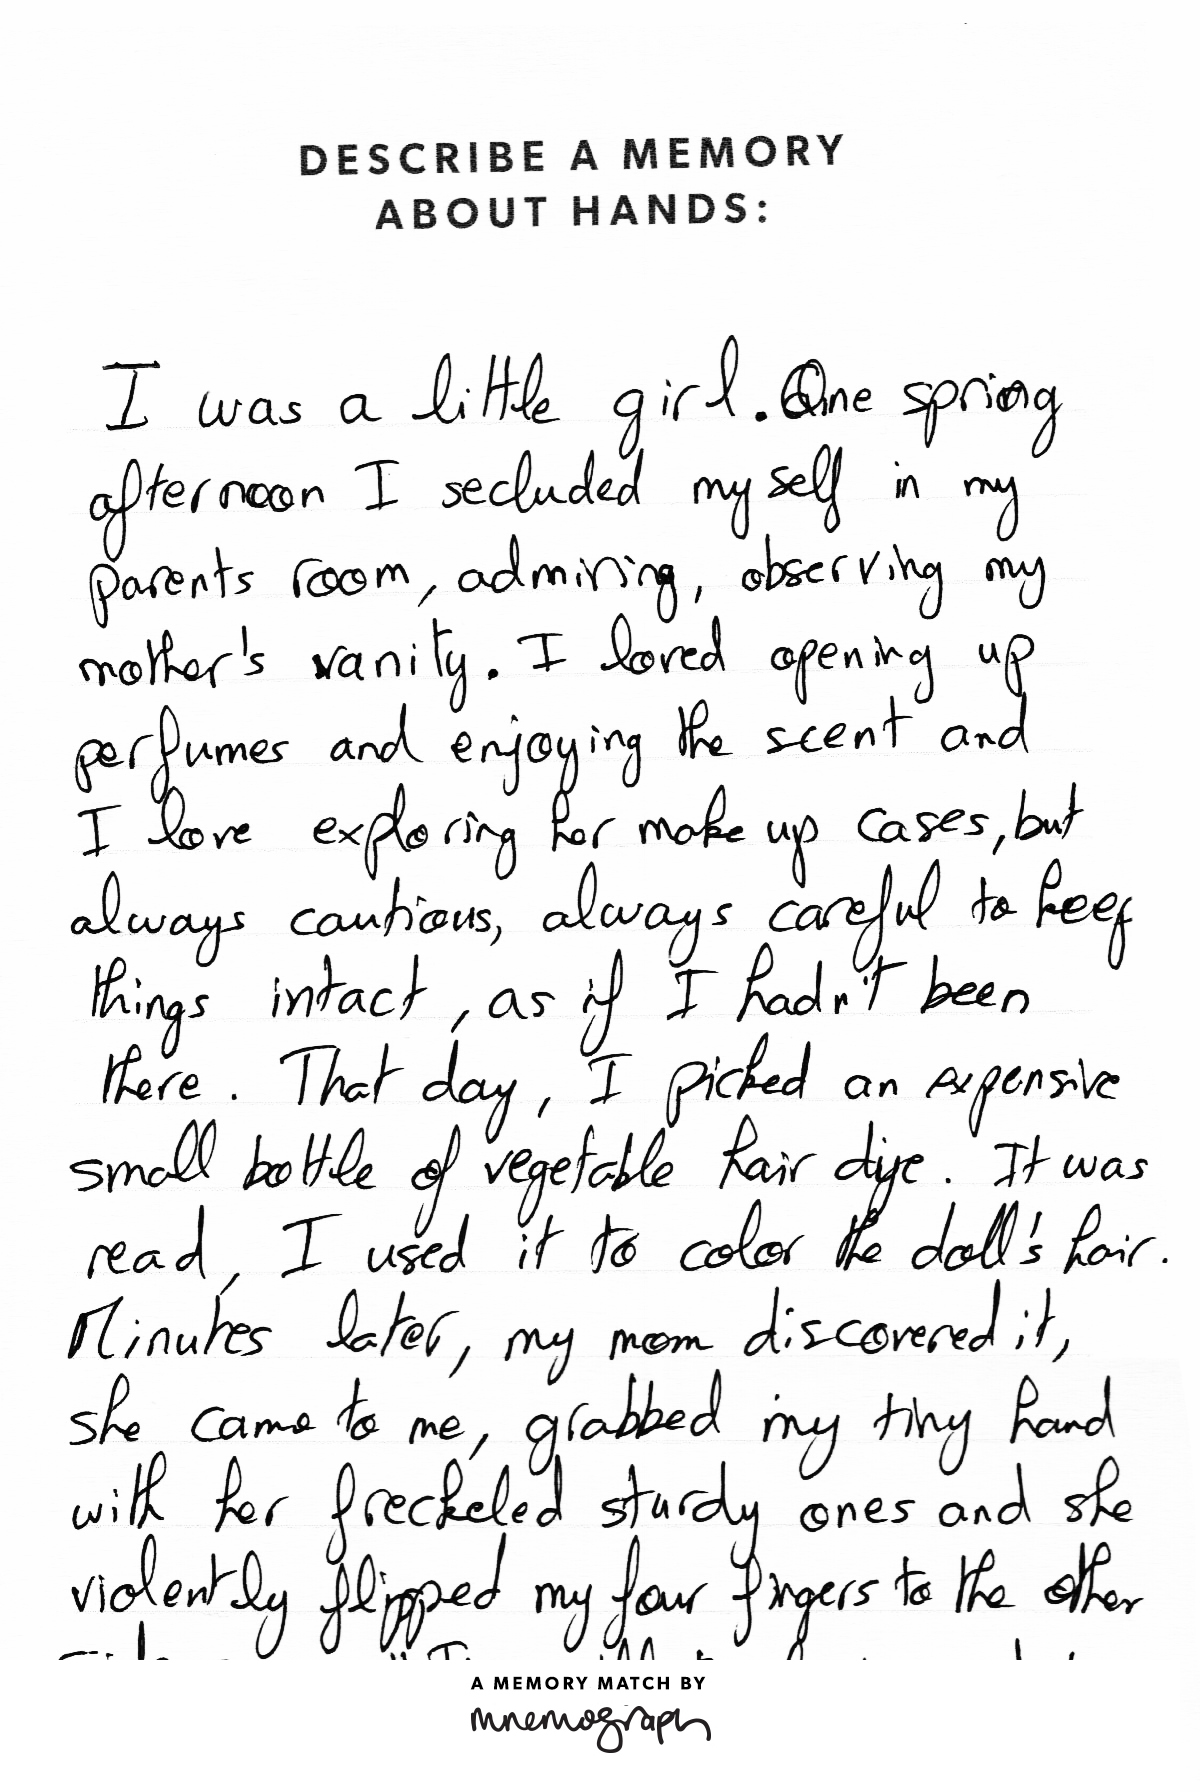 DESCRIBE A MEMORY
ABOUT HANDS:
I was a little girl. One spring
afternoon I secluded myself in my
parents room, admiring, observing my
mother's vanity. I loved opening up
perfumes and enjoying the scent and
I love exploring her make up cases, but
always cautious, always careful to keep
things intact, as if I hadn't been
there. That day, I picked an expensive
small bottle of vegetable hair dye. It was
read, I used it to color the doll's hair.
Minutes later, my mom discovered it,
she came to me, grabbed my tiny hand
with her freckeled sturdy ones and she
violently flipped my four fingers to the other
A MEMORY MATCH BY
mnemograph